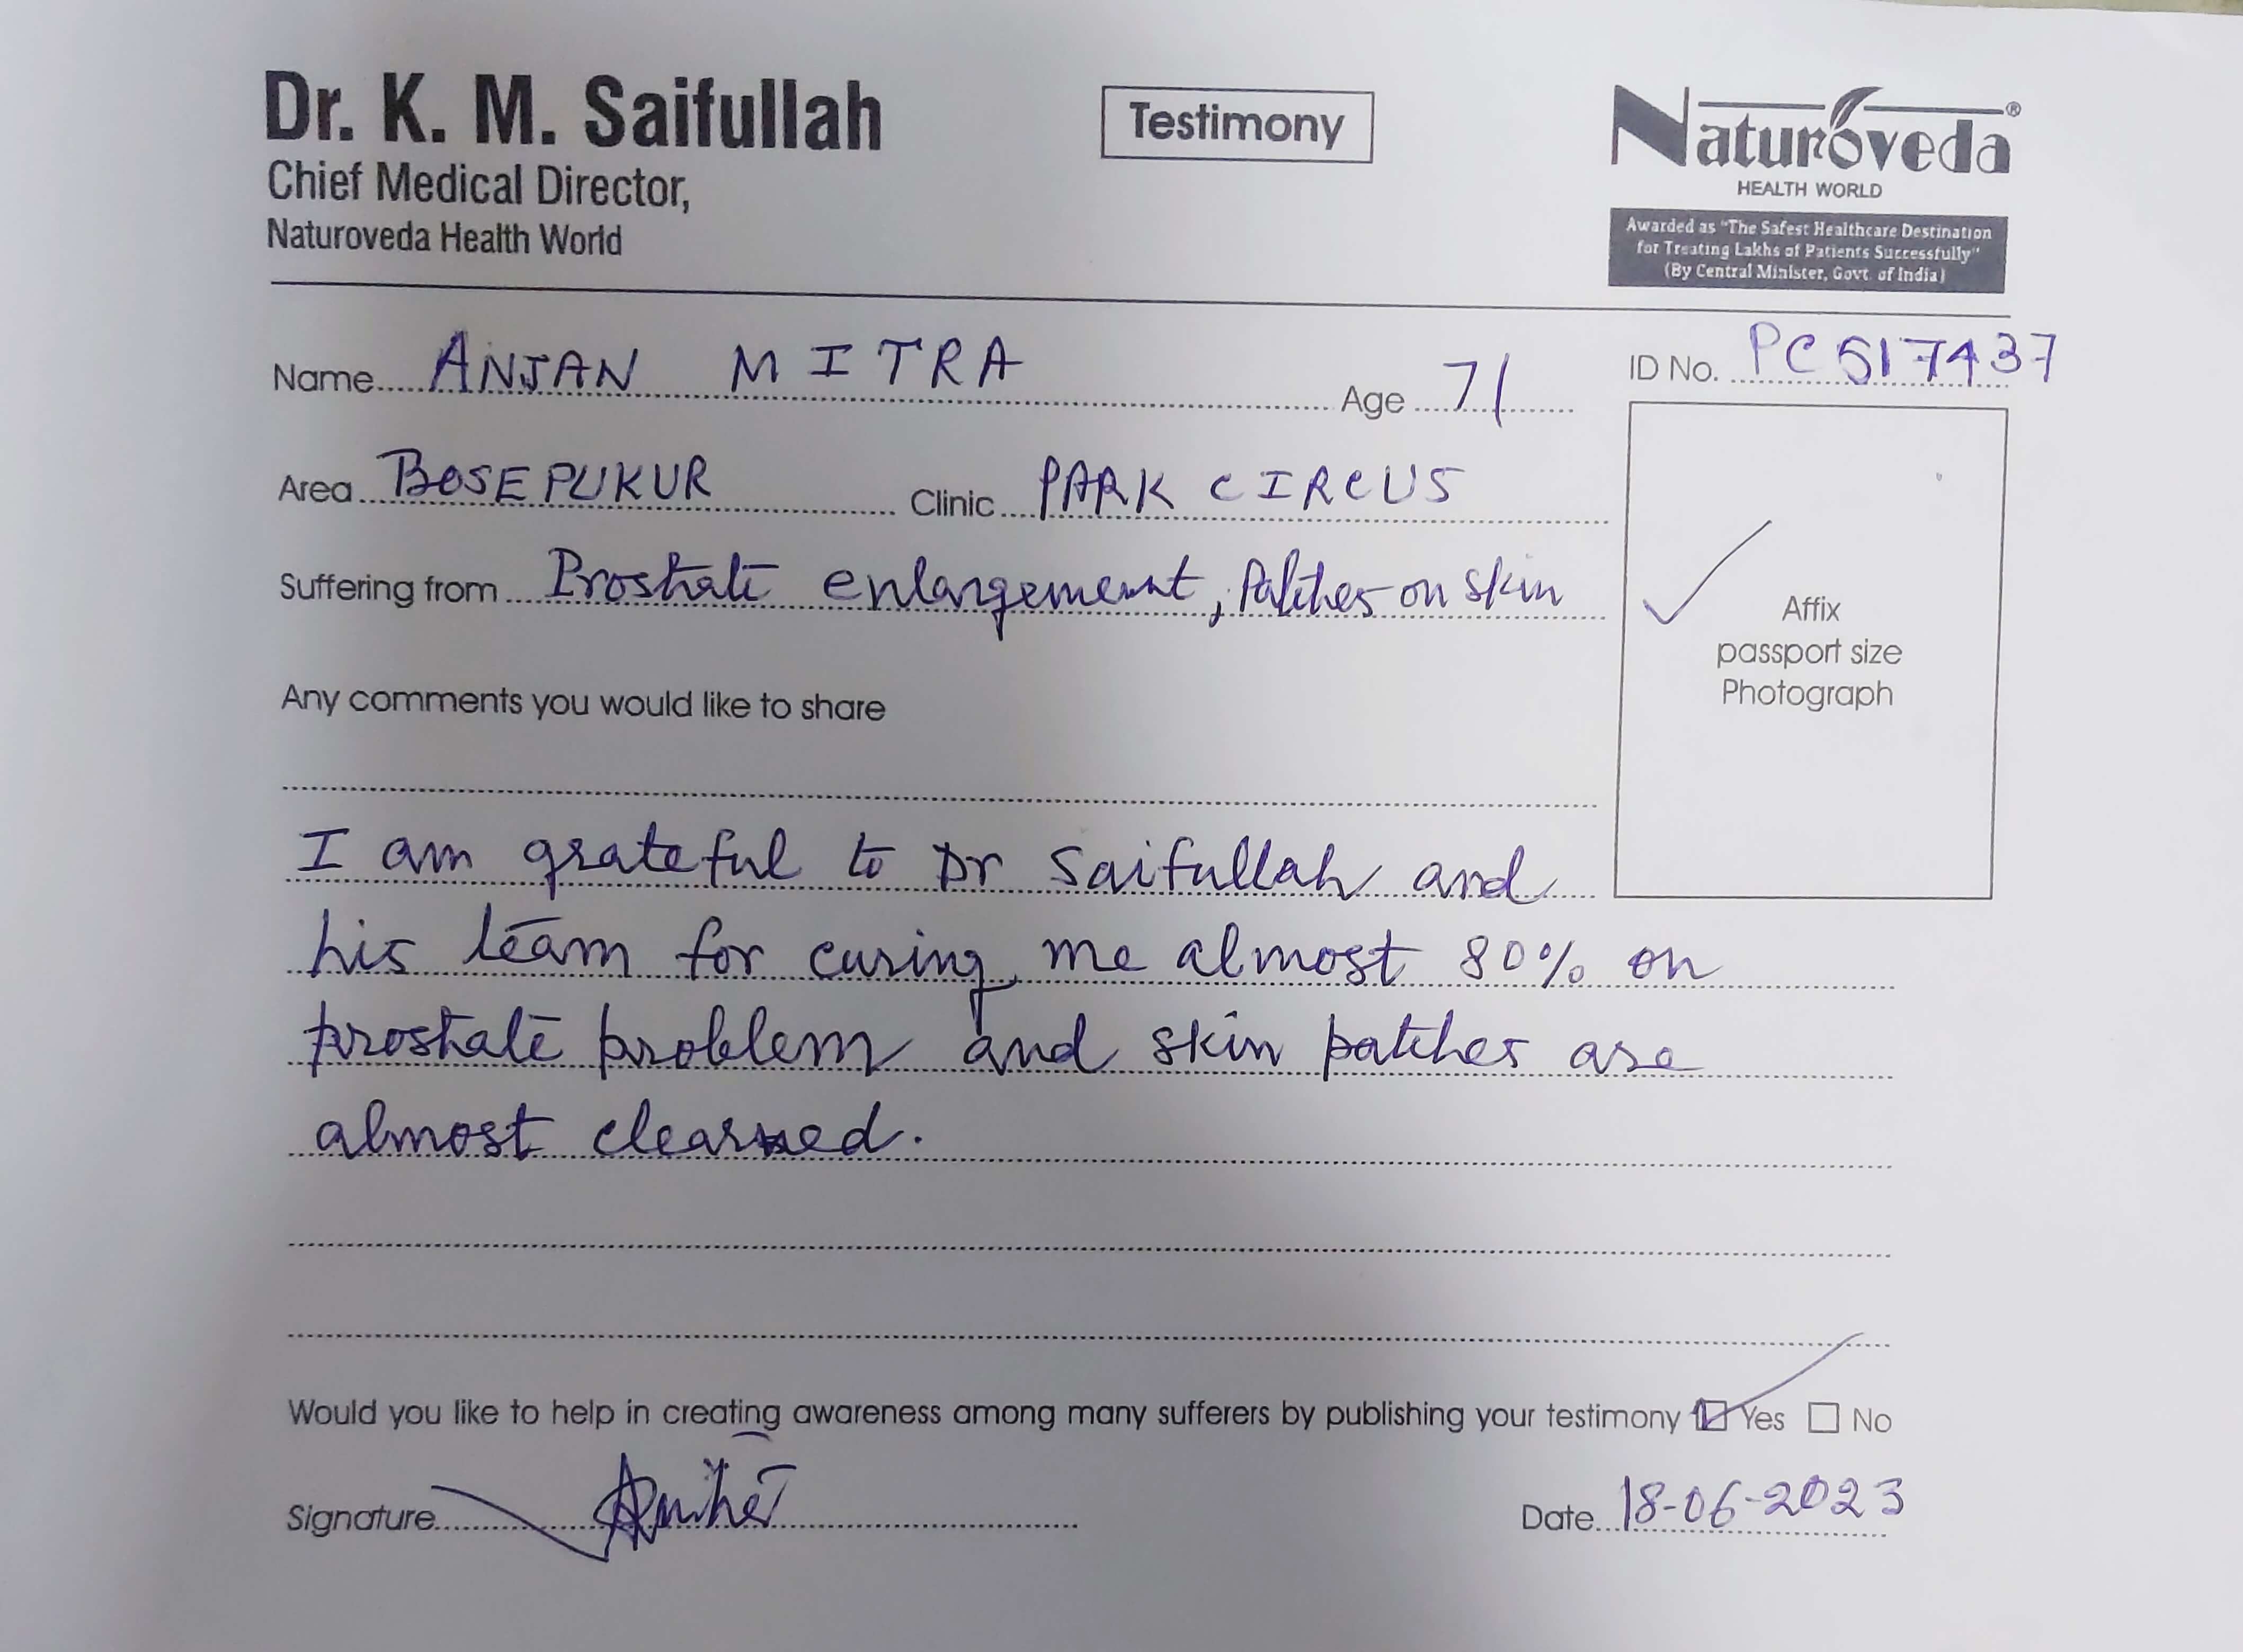 Dr. K. M. Saifullah
Chief Medical Director,
Naturoveda Health World
Testimony
Naturoveda®
HEALTH WORLD
Awarded as "The Safest Healthcare Destination
for Treating Lakhs of Patients Successfully"
(By Central Minister, Govt. of India)
Name ANJAN MITRA Age 71 ID No. PC 517437
Area BOSEPUKUR Clinic PARK CIRCUS
Suffering from Prostate enlargement, Patches on skin
Affix
passport size
Photograph
Any comments you would like to share
I am grateful to Dr Saifullah and
his team for curing me almost 80% on
prostate problem and skin patches are
almost cleared.
Would you like to help in creating awareness among many sufferers by publishing your testimony Yes No
Signature
Date 18-06-2023